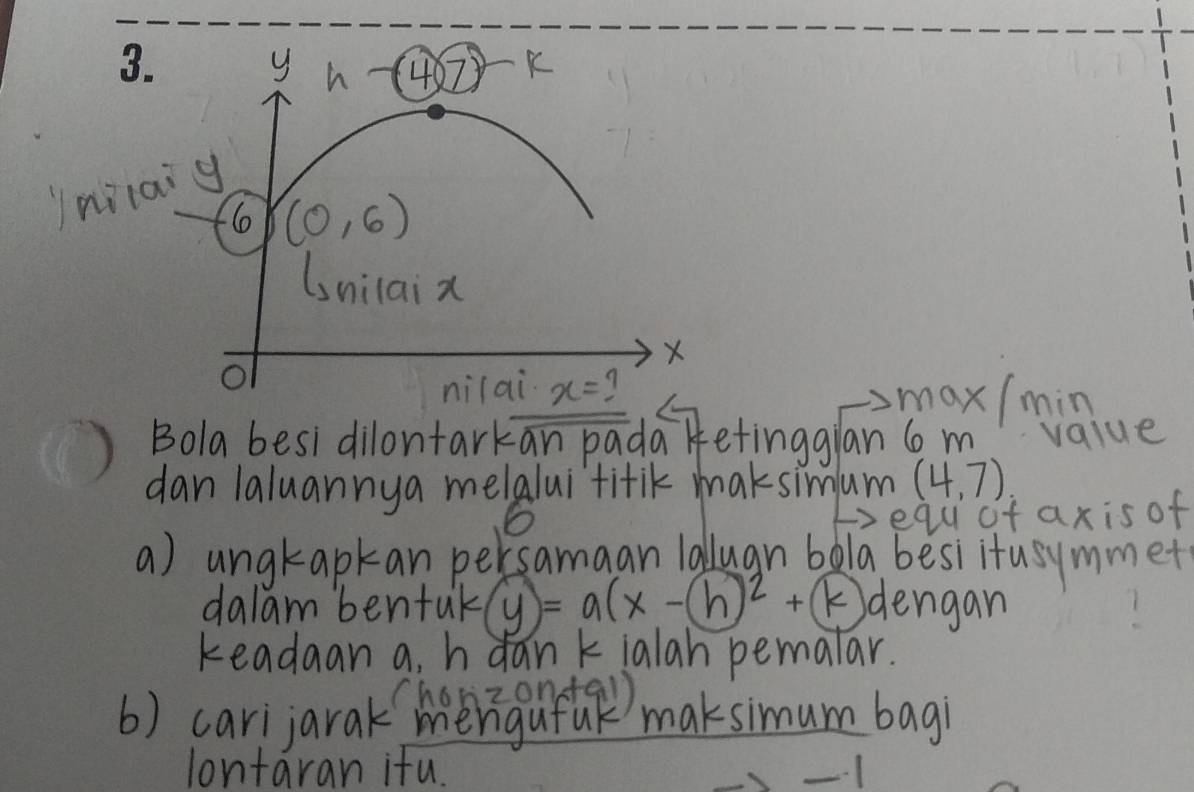 3.
y h (4,7) k
nilai y
6 (0,6)
↳nilai x
O
x
nilai x=?
→max/min
value
Bola besi dilontarkan pada ketinggian 6 m
dan laluannya melalui titik maksimum (4,7).
6
→equ of axis of
symmet
a) ungkapkan persamaan laluan bola besi itu
dalam bentuk y = a(x - h)² + k dengan
keadaan a, h dan k ialah pemalar.
?
(horizontal)
b) cari jarak mengufuk maksimum bagi
lontaran itu.
→ -1